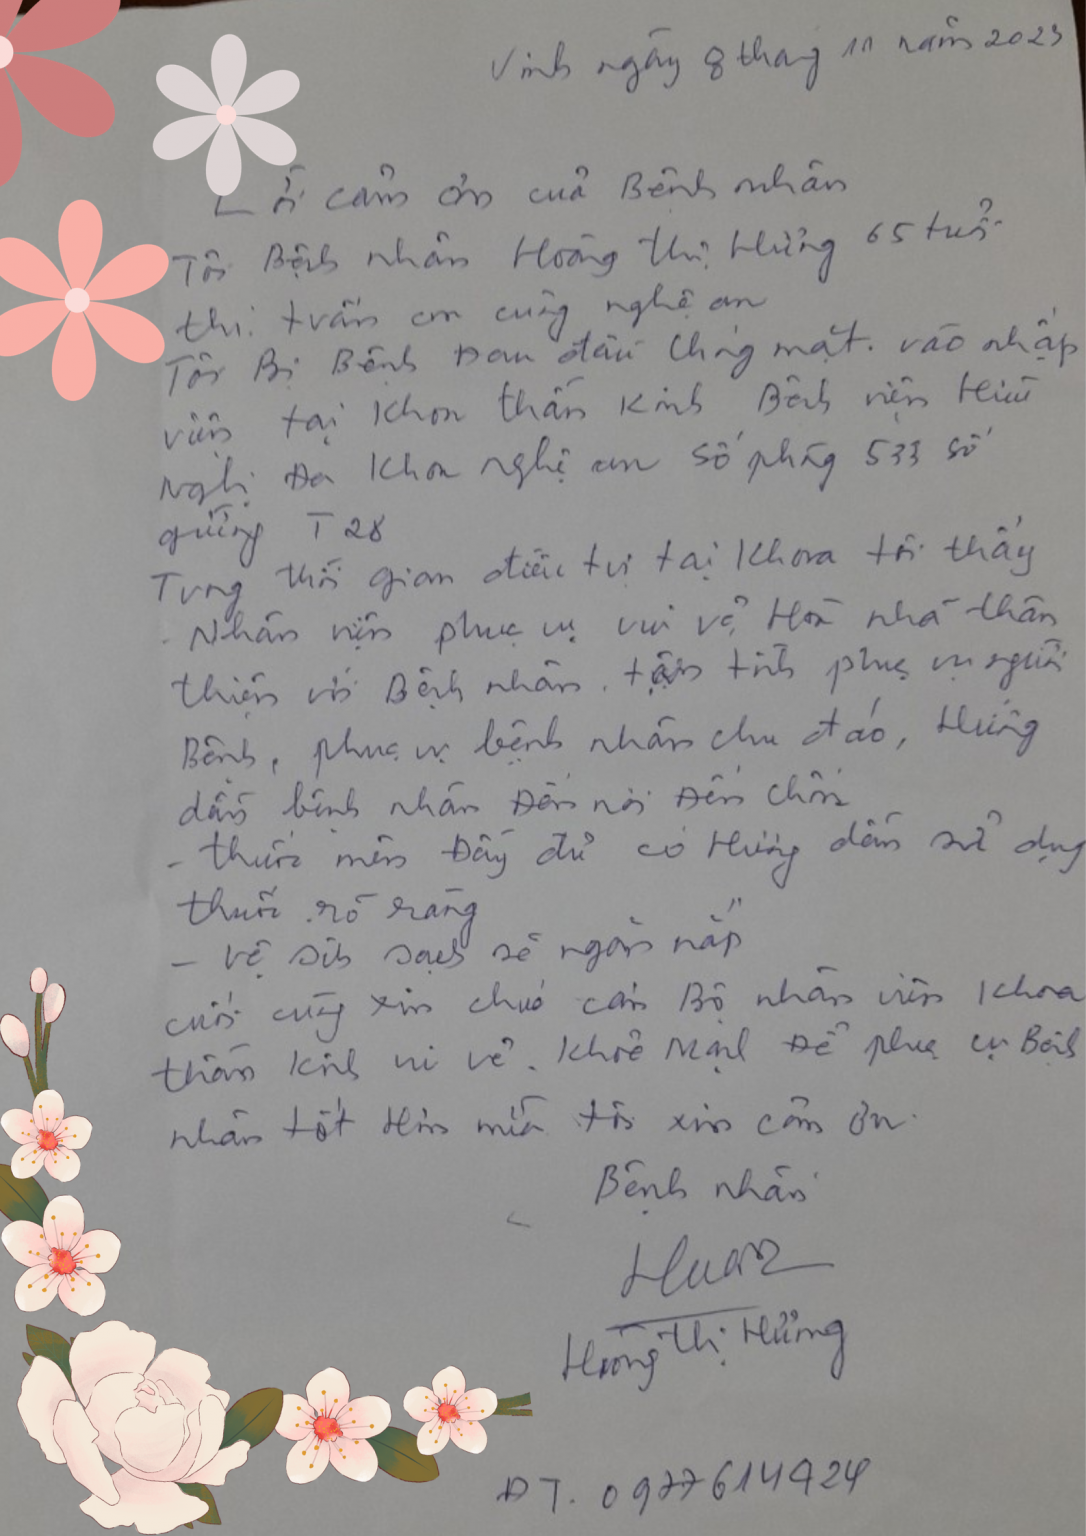 Vinh ngày 8 tháng 11 năm 2023
Lời cảm ơn của Bệnh nhân
Tôi Bệnh nhân Hoàng Thị Hường 65 tuổi
thị trấn con cuông nghệ an
Tôi Bị Bệnh Đau đầu Chóng mặt. vào nhập
viện tại Khoa thần Kinh Bệnh viện Hữu
Nghị Đa Khoa nghệ an số phòng 533 số
giường T28
Trong thời gian điều trị tại Khoa tôi thấy
- Nhân viên phục vụ vui vẻ, Hoà nhã thân
thiện với Bệnh nhân. tận tình phục vụ người
Bệnh, phục vụ bệnh nhân chu đáo, Hướng
dẫn bệnh nhân Đến nơi Đến chốn
- thuốc men Đầy đủ có Hướng dẫn sử dụng
thuốc rõ ràng
- vệ sinh sạch sẽ ngăn nắp
cuối cùng xin chúc cán Bộ nhân viên Khoa
thần Kinh vui vẻ. Khoẻ Mạnh Để phục vụ Bệnh
nhân tốt Hơn nữa tôi xin cảm ơn.
Bệnh nhân
Hoàng Thị Hường
ĐT. 0977614924